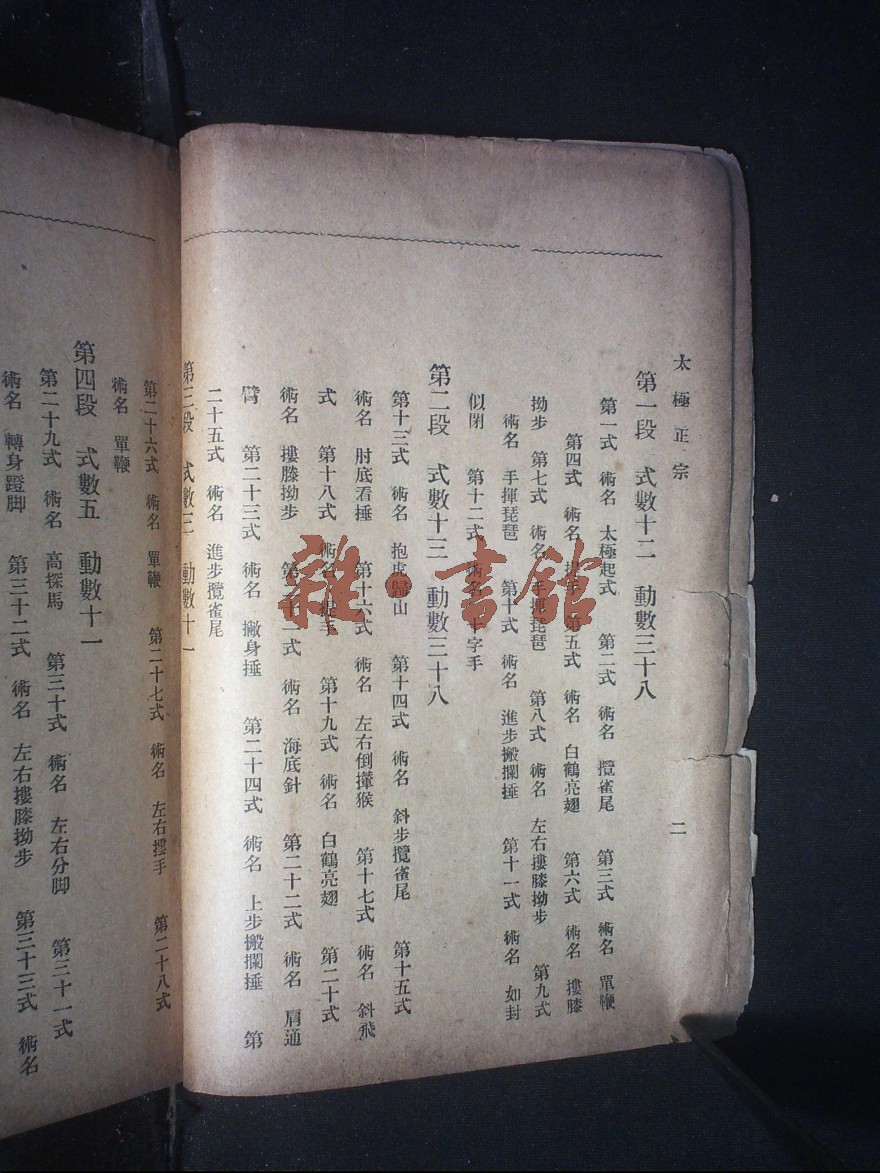 太極正宗
二
第一段　式數十二　動數三十八
第一式　術名　太極起式　第二式　術名　攬雀尾　第三式　術名　單鞭
第四式　術名　提手　第五式　術名　白鶴亮翅　第六式　術名　摟膝
拗步　第七式　術名　手揮琵琶　第八式　術名　左右摟膝拗步　第九式
術名　手揮琵琶　第十式　術名　進步搬攔捶　第十一式　術名　如封
似閉　第十二式　術名　十字手
第二段　式數十三　動數三十八
第十三式　術名　抱虎歸山　第十四式　術名　斜步攬雀尾　第十五式
術名　肘底看捶　第十六式　術名　左右倒攆猴　第十七式　術名　斜飛
式　第十八式　術名　提手　第十九式　術名　白鶴亮翅　第二十式
術名　摟膝拗步　第二十一式　術名　海底針　第二十二式　術名　肩通
臂　第二十三式　術名　撇身捶　第二十四式　術名　上步搬攔捶　第
二十五式　術名　進步攬雀尾
第三段　式數三　動數十一
第二十六式　術名　單鞭　第二十七式　術名　左右擺手　第二十八式
術名　單鞭
第四段　式數五　動數十一
第二十九式　術名　高探馬　第三十式　術名　左右分脚　第三十一式
術名　轉身蹬脚　第三十二式　術名　左右摟膝拗步　第三十三式　術名
雜·書館